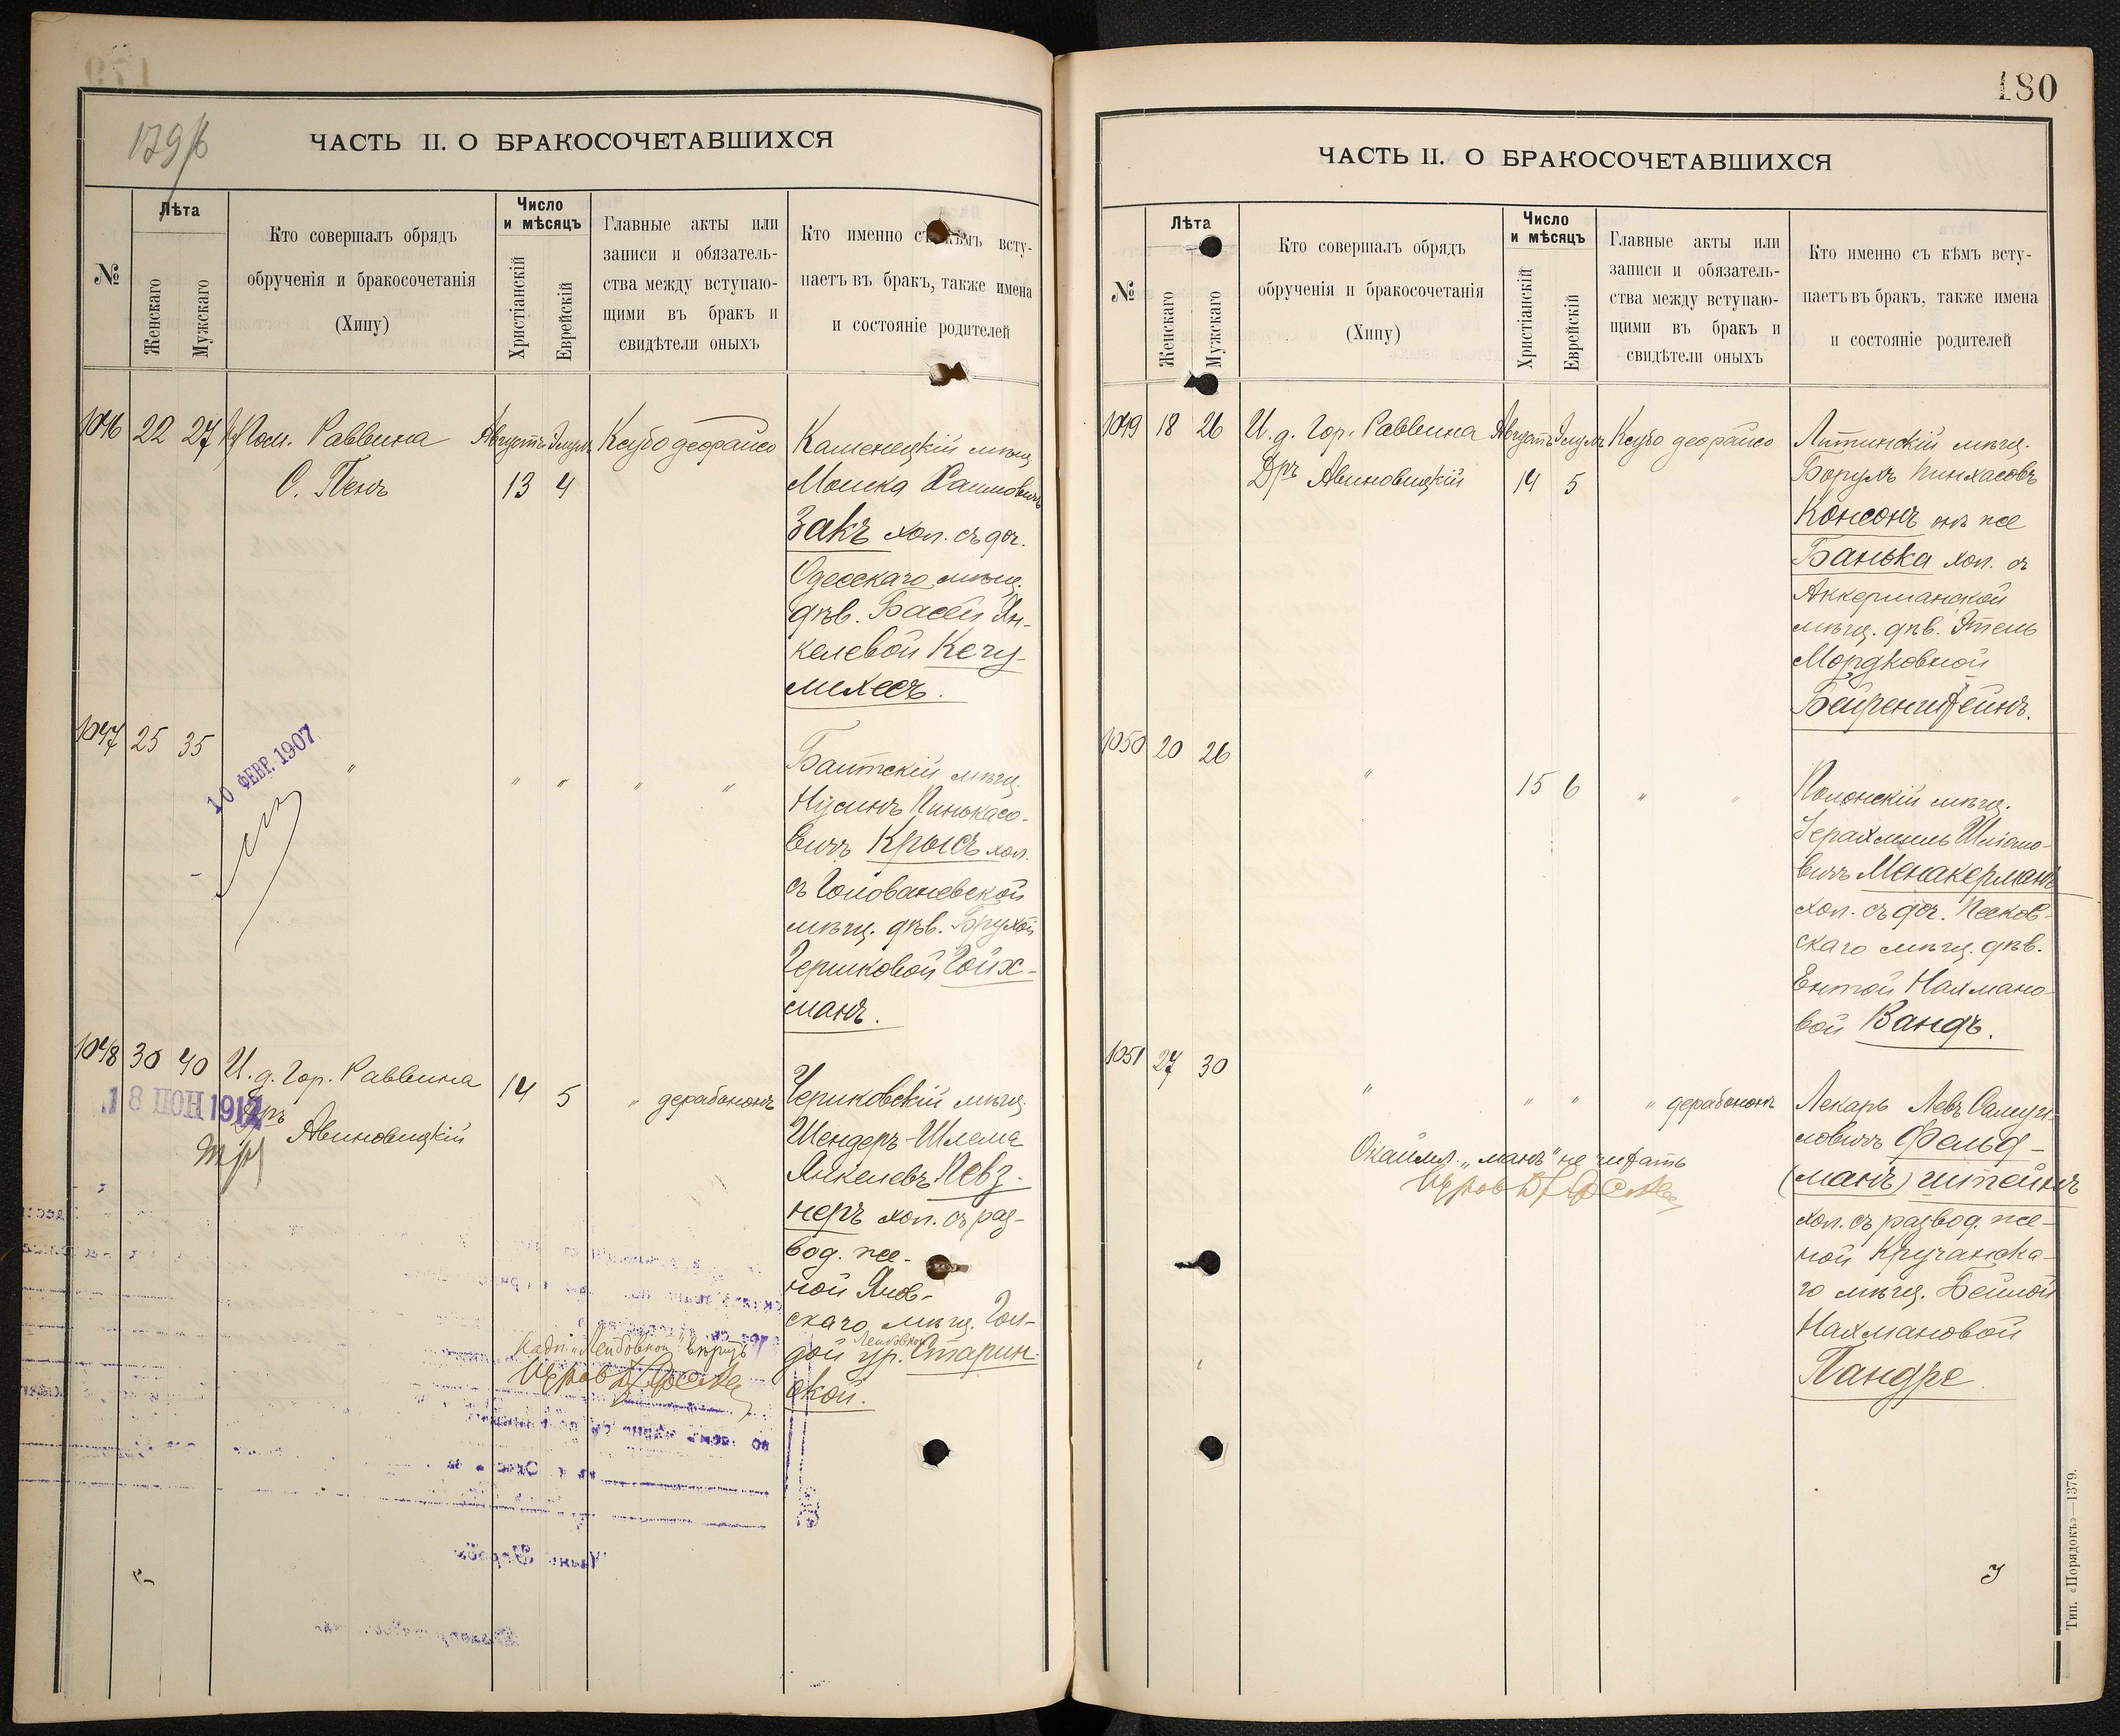 179б
ЧАСТЬ II. О БРАКОСОЧЕТАВШИХСЯ
№
Лѣта
Женскаго
Мужскаго
Кто совершалъ обрядъ
обрученія и бракосочетанія
(Хипу)
Число
и мѣсяцъ
Христіанскій
Еврейскій
Главные акты или
записи и обязатель-
ства между вступаю-
щими въ бракъ и
свидѣтели оныхъ
Кто именно съ кѣмъ всту-
паетъ въ бракъ, также имена
и состояніе родителей
1046 22 27 Пом. Раввина
С. Пенъ
Августъ Элулъ
13 4
Ксубо деорайсо
Каменецкій мѣщ.
Мошко Хаимовичъ
Закъ хол. съ доч.
Одесскаго мѣщ.
дѣв. Басей Ян-
келевой Кечу-
лихесъ.
1047 25 35
10 ФЕВР. 1907
" " " " "
Балтскій мѣщ.
Нусинъ Пинькасо-
вичъ Крысъ хол.
съ Голованевской
мѣщ. дѣв. Брухой
Гершковой Гойх-
манъ.
1048 30 40 И. д. Гор. Раввина
Дръ Авиновицкій
14 5
" дерабононъ
Чериковскій мѣщ.
Шендеръ-Шлема
Янкелевъ Певз-
неръ хол. съ раз-
вод. же-
ной Янов-
скаго мѣщ. Гол-
дой Лейбовной ур. Старин-
ской.
Надп. "Лейбовной" вѣрить
180
ЧАСТЬ II. О БРАКОСОЧЕТАВШИХСЯ
№
Лѣта
Женскаго
Мужскаго
Кто совершалъ обрядъ
обрученія и бракосочетанія
(Хипу)
Число
и мѣсяцъ
Христіанскій
Еврейскій
Главные акты или
записи и обязатель-
ства между вступаю-
щими въ бракъ и
свидѣтели оныхъ
Кто именно съ кѣмъ всту-
паетъ въ бракъ, также имена
и состояніе родителей
1049 18 26 И. д. Гор. Раввина
Дръ Авиновицкій
Августъ Элулъ
14 5
Ксубо деорайсо
Литинскій мѣщ.
Борухъ Пинхасовъ
Консонъ онъ же
Банька хол. съ
Аккерманской
мѣщ. дѣв. Этель
Мордковной
1050 20 26
"
15 6
" "
Полонскій мѣщ.
Іерахмиль Шлiомо-
вичъ Менакерманъ
хол. съ доч. Песков-
скаго мѣщ. дѣв.
Ентой Нахмано-
вой Вандъ.
1051 27 30
" " "
" дерабононъ
Лекарь Левъ Самуи-
ловичъ Фельд-
(манъ) штейнъ
хол. съ развод. же-
ной Кручанска-
го мѣщ. Бейлой
Нахмановой
Пандре
Окаймл. "манъ" не читать
Тип. «Порядокъ»—1379.